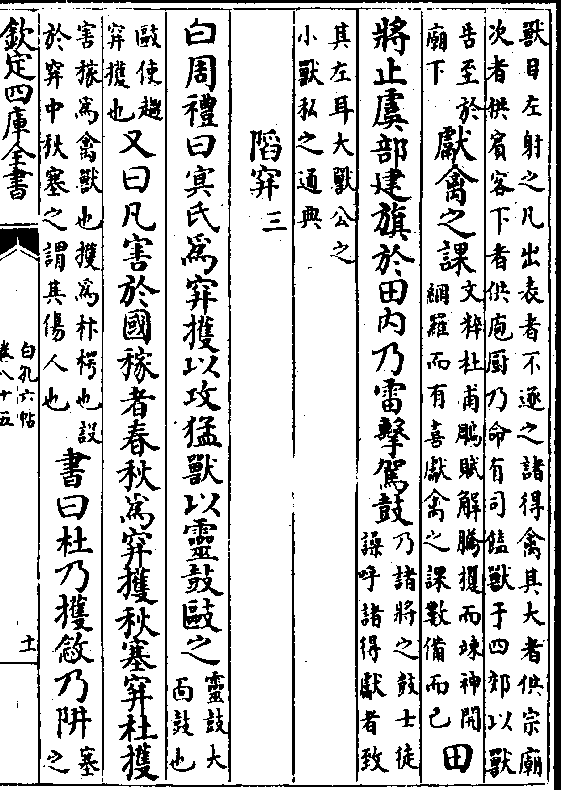 獸自左射之凡出表者不逐之諸得禽其大者供宗廟
次者供賓客下者供庖厨乃命有司饁獸于四郊以獸
告至於
廟下
獻禽之課
文粹杜甫鵰賦解騰攫而竦神開
網羅而有喜獻禽之課數備而已
田
將止虞部建旗於田内乃雷擊駕鼓
乃諸將之鼓士徒
譟呼諸得獻者致
其左耳大獸公之
小獸私之通典
陷穽三
白周禮曰冥氏為穽擭以攻猛獸以靈鼓敺之
靈鼓大
面鼓也
敺使趨
穽擭也
又曰凡害於國稼者春秋為穽擭秋塞穽杜擭
害稼為禽獸也擭為柞楞也設
於穽中秋塞之謂其傷人也
書曰杜乃擭敜乃阱
塞
之
欽定四庫全書
白孔六帖
卷八十五
十一